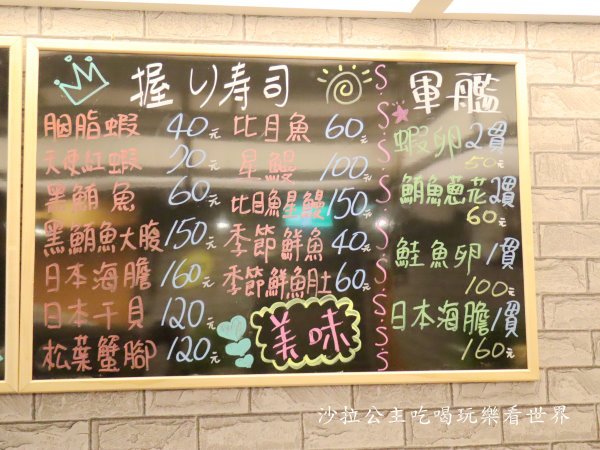 握り寿司
胭脂蝦 40元
天使紅蝦 70元
黑鮪魚 60元
黑鮪魚大腹 150元
日本海膽 160元
日本干貝 120元
松葉蟹腳 120元
比目魚 60元
星鰻 100元
比目魚星鰻 150元
季節鮮魚 40元
季節鮮魚肚 60元
美味
軍艦
蝦卵 2貫
50元
鮪魚蔥花 2貫
60元
鮭魚卵 1貫
100元
日本海膽 1貫
160元
沙拉公主吃喝玩樂看世界